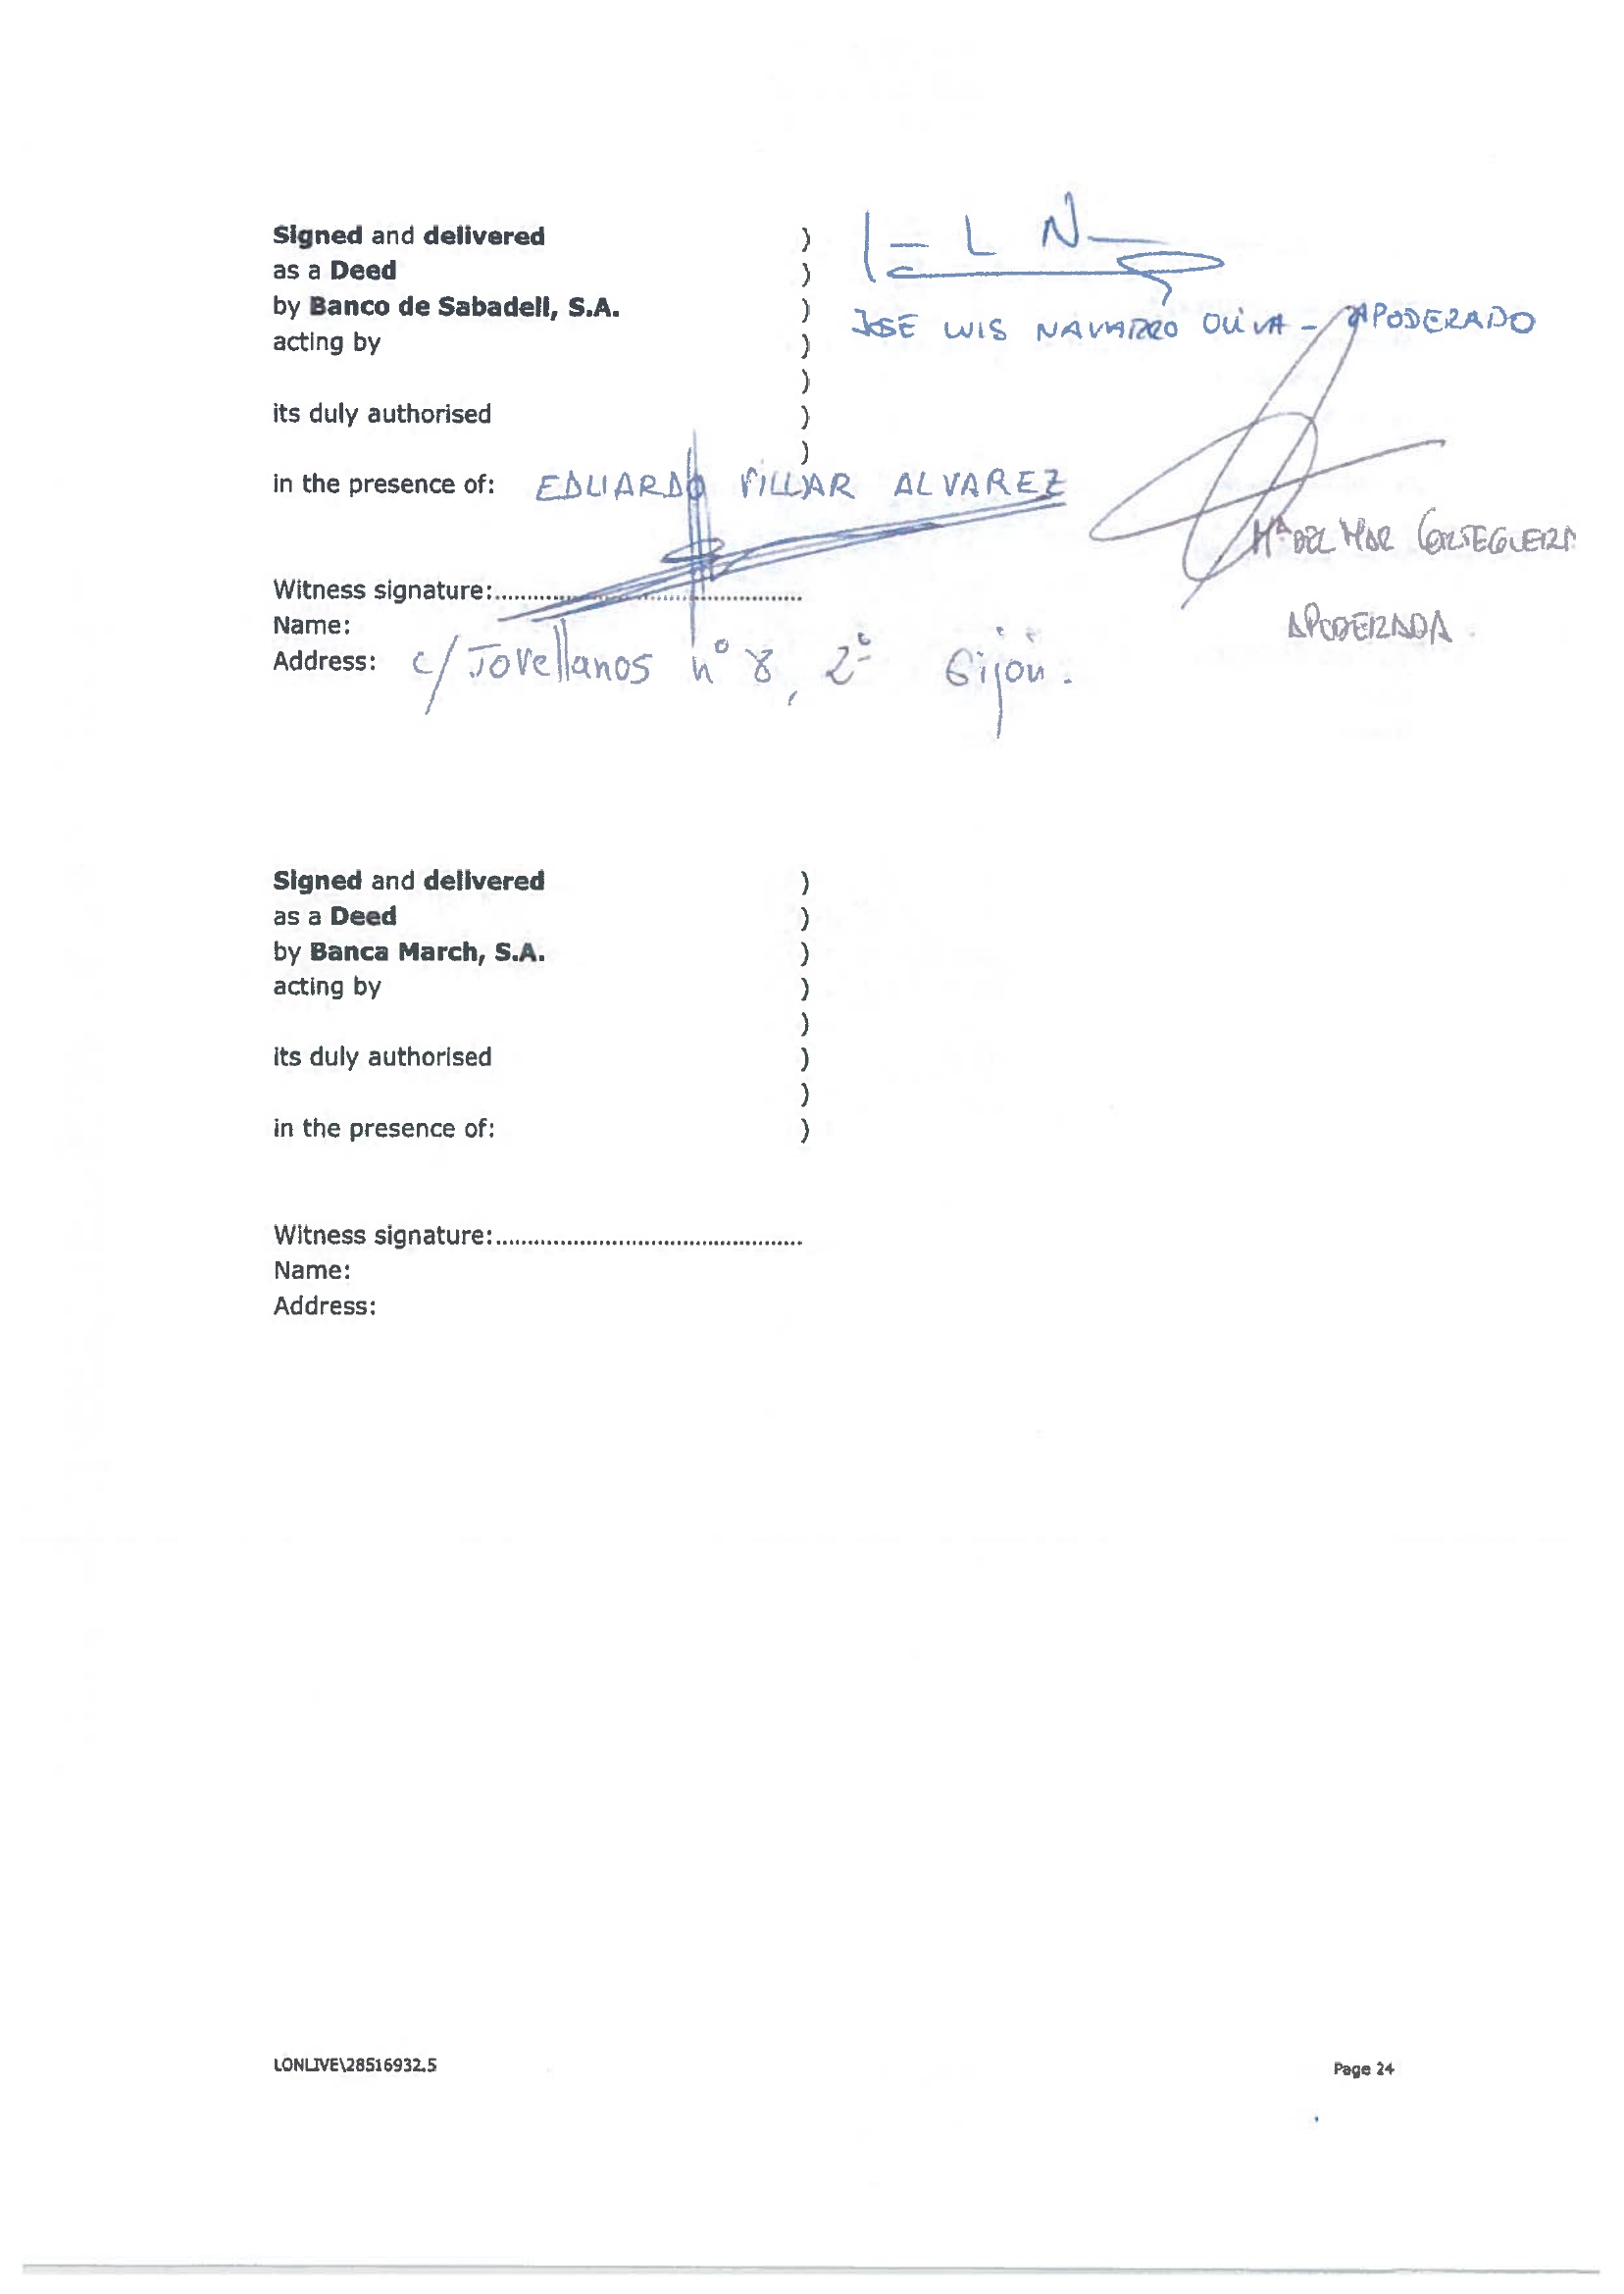 Signed and delivered )
as a Deed )
by Banco de Sabadell, S.A. )
acting by )
)
its duly authorised )
)
JOSE LUIS NAVARRO OLIVA - APODERADO
in the presence of: EDUARDO VILLAR ALVAREZ
Mª DEL MAR
APODERADA.
Witness signature:...............................................
Name:
Address: c/ Jovellanos nº 8, 2º Gijón.
Signed and delivered )
as a Deed )
by Banca March, S.A. )
acting by )
)
its duly authorised )
)
in the presence of: )
Witness signature:...............................................
Name:
Address:
LONLIVE\28516932.5
Page 24